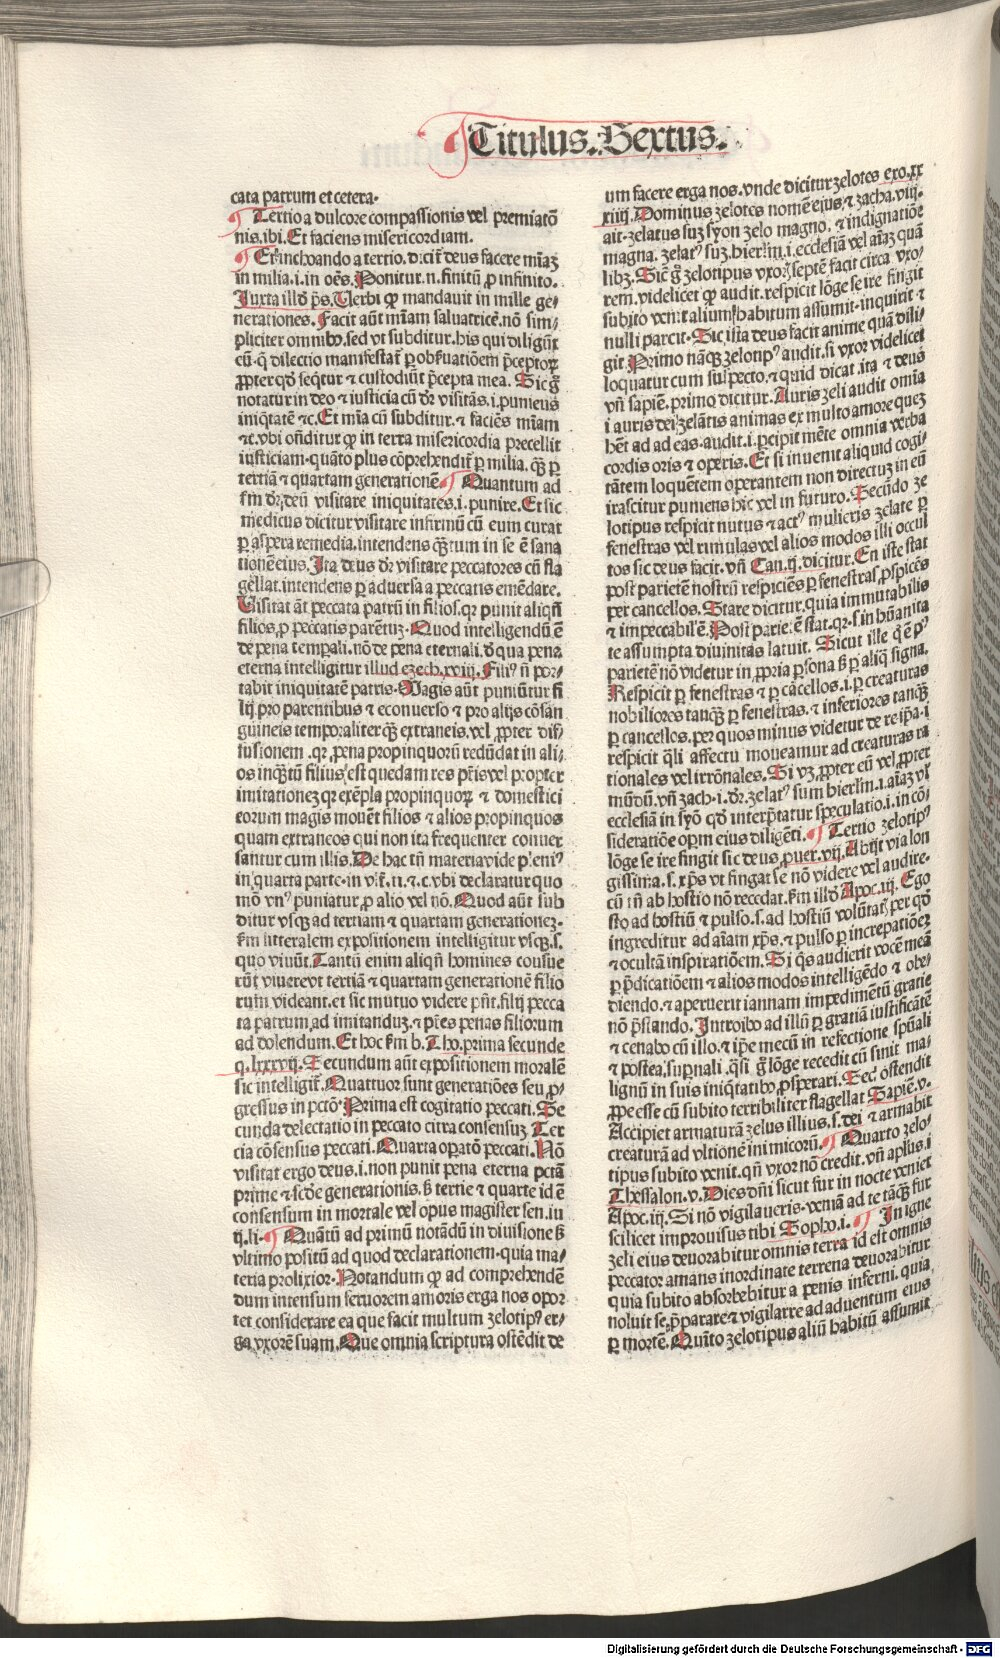 Titulus. Sextus.
cata patrum et cetera.
Tertio a dulcore compassionis vel premiatō
nis. ibi. Et faciens misericordiam.
Et inchoando a tertio. dicit̄ deus facere mīaʒ
in milia. i. in oēs. Ponitur. n. finitū ꝓ infinito.
Iuxta illd̓ p̄s. Verbi ꝙ mandauit in mille ge⸗
nerationes. Facit aūt mīam saluatricē. nō sim⸗
pliciter omnibꝰ. sed vt subditur. his qui diligūt
cū. q̄ dilectio manifestat̄ ꝑ obẜuatiōem p̄ceptoꝝ
ꝓpter qd̓ seq̄tur ⁊ custodiūt p̄cepta mea. Sic gͦ
notatur in deo ⁊ iusticia cū dr̄ visitās. i. puniens
iniq̄tatē ⁊c. Et mīa cū subditur. ⁊ faciēs mīam
⁊c. vbi oñditur ꝙ in terra misericordia precellit
iusticiam. quāto plus cōprehendit̄ ꝑ milia. q̄ꝫ ꝑ
tertiā ⁊ quartam generationē. Quantum ad
ẜm dr̄. deū visitare iniquitates. i. punire. Et sic
medicus dicitur visitare infirmū cū eum curat
ꝑ aspera remedia. intendens q̄ꝫtum in se ē sana
tionē eius. Ita deus dr̄ visitare peccatores cū fla
gellat. intendens ꝑ aduersa a peccatis emēdare.
Visitat āt peccata patrū in filios. qꝛ punit aliqn̄
filios ꝓ peccatis parētuʒ. Quod intelligendū ē
de pena temꝑali. nō de pena eternali. d̓ qua pena
eterna intelligitur illud ezech. xviij. Filiꝰ nō por⸗
tabit iniquitatē patris. Magis aūt puniūtur fi
lij pro parentibus ⁊ econuerso ⁊ pro alijs cōsan
guineis temporaliter q̄ꝫ extraneis. vel ꝓpter dif⸗
fusionem. qꝛ pena propinquorū redūdat in ali⸗
os inq̄ꝫtū filius est quedam res pr̄is vel propter
imitationeʒ qꝛ exēpla propinquoꝝ ⁊ domestici
eorum magis mouēt filios ⁊ alios propinquos
quam extraneos qui non ita frequenter conuer
santur cum illis. De hac tn̄ materia vide pleniꝰ
in quarta parte. in vlt̄. n. ⁊. c. vbi declaratur quo
mō vnꝰ puniatur ꝓ alio vel nō. Quod aūt sub
ditur vsqꝫ ad tertiam ⁊ quartam generationeʒ.
ẜm litteralem expositionem intelligitur vsqꝫ. s.
quo viuūt. Tantū enim aliqn̄ homines consue
rūt viuere vt tertiā ⁊ quartam generationē filio
rum videant. et sic mutuo videre pn̄t. filij pecca
ta patrum ad imitanduʒ. ⁊ pr̄es penas filiorum
ad dolendum. Et hoc ẜm b. Tho. prima secunde
q. lxxxvij. Secundum aūt expositionem moralē
sic intelligit̄. Quattuor sunt generatiōes seu ꝓ⸗
gressus in pctō. Prima est cogitatio peccati. Se
cunda delectatio in peccato citra consensuʒ. Ter
cia cōsensus peccati. Quarta oꝑatō peccati. Nō
visitat ergo deus. i. non punit pena eterna pctā
prime ⁊ scd̓e generationis. ß tertie ⁊ quarte id ē
consensum in mortale vel opus magister sen. iu
ij. li. Quātū ad primū notādū in diuisione ß
vltimo positū ad quod declarationem. quia ma⸗
teria prolixior. Notandum ꝙ ad comprehendē
dum intensum feruorem amoris erga nos opor
tet considerare ea que facit multum zelotipꝰ er⸗
ga vxorē suam. Que omnia scriptura ostēdit de
um facere erga nos. vnde dicitur zelotes exo. xx
xiiij. Dominus zelotes nomē eius. ⁊ zacha. viij.
ait. zelatus suʒ syon zelo magno. ⁊ indignatiōe
magna. zelatꝰ suʒ. hierlm̄. i. ecclesiā vel aīaʒ quā
libʒ. Sic gͦ zelotipus vxoꝝ septē facit circa vxo⸗
rem. videlicet ꝙ audit. respicit lōge se ire fingit
subito venit alium habitum assumit. inquirit ⁊
nulli parcit. Sic ista deus facit anime quā dili⸗
git. Primo nāqꝫ zelotipꝰ audit. si vxor videlicet
loquatur cum suspecto. ⁊ quid dicat. ita ⁊ deus
vn̄ sapiē. primo dicitur. Auris zeli audit omīa
i auris dei zelātis animas ex multo amore queʒ
hēt ad ad eas. audit. i. ꝑcipit mēte omnia verba
cordis oris ⁊ operis. Et si inuenit aliquid cogi⸗
tātem loquētem operantem non directuʒ in eū
irascitur puniens hic vel in futuro. Secūdo ze
lotipus respicit nutus ⁊ actꝰ mulieris zelate ꝑ
fenestras vel rimulas vel alios modos illi occul
tos sic deus facit. vn̄ Can. ij. dicitur. En iste stat
post parietē nostrū respiciēs ꝑ fenestras ꝓspicēs
per cancellos. Stare dicitur. quia immutabilis
⁊ impeccabilē. Post pariē. ē stat. qꝛ. s in hūanita
te assumpta diuinitas latuit. Sicut ille q̄ ē pꝰ
parietē nō videtur in ꝓpria ꝑsona ß ꝑ aliq̄ signa.
Respicit ꝑ fenestras ⁊ ꝑ cācellos. i. ꝑ creaturas
nobiliores tanq̄ꝫ ꝑ fenestras. ⁊ inferiores tanq̄ꝫ
ꝑ cancellos. per quos minus videtur de re ip̄a. i
respicit q̄li affectu moueamur ad creaturas ra
tionales vel irrōnales. Si vʒ. ꝓpter eū vel ꝓpter
mūdū. vn̄ zach. i. dr̄. zelatꝰ sum hierlm̄. i. aīaʒ vl̓
ecclesiā in syō qd̓ interp̄tatur speculatio. i. in cō⸗
sideratiōe oꝑm eius diligēti. Tertio zelotipꝰ
lōge se ire fingit sic deus. ꝓuer. vij. Abijt via lon
gissima. s. xp̄s vt fingat se nō videre vel audire.
cū tn̄ ab hostio nō recedat. ẜm illd̓ Apoc. iij. Ego
sto ad hostiū ⁊ pulso. s. ad hostiū volūtatꝭ per qd̓
ingreditur ad aīam xp̄s. ⁊ pulso ꝑ increpatiōeʒ
⁊ occultā inspiratiōem. Si q̄s audierit vocē meā
ꝑ p̄dicatiōem ⁊ alios modos intelligēdo ⁊ obe⸗
diendo. ⁊ aperuerit iannam impedimētū gratie
nō p̄stando. Introibo ad illū ꝑ gratiā iustificātē
⁊ cenabo cū illo. ⁊ ip̄e mecū in refectione spūali
⁊ postea. suꝑnali. q̄si gͦ lōge recedit cū sinit ma⸗
lignū in suis iniq̄tatibꝰ ꝓsperari. Sed ostendit
ꝓpe esse cū subito terribiliter flagellat Sapiē. v.
Accipiet armaturā zelus illius. s. dei ⁊ armabit
creaturā ad vltionē inimicorū. Quarto zelo⸗
tipus subito venit. qn̄ vxor nō credit. vn̄ apl̓us. i
Thessalon. v. Dies dn̄i sicut fur in nocte veniet
Apoc. iij. Si nō vigilaueris. veniā ad te tāq̄ꝫ fur
scilicet improuisus tibi Sopho. i. In igne
zeli eius deuorabitur omnis terra id est omnis
peccator amans inordinate terrena deuorabitur
quia subito absorbebitur a penis inferni. quia
noluit se p̄parare ⁊ vigilarre ad aduentum eius
ꝑ mortē. Quīto zelotipus aliū habitū assumit
Digitalisierung gefördert durch die Deutsche Forschungsgemeinschaft - DFG